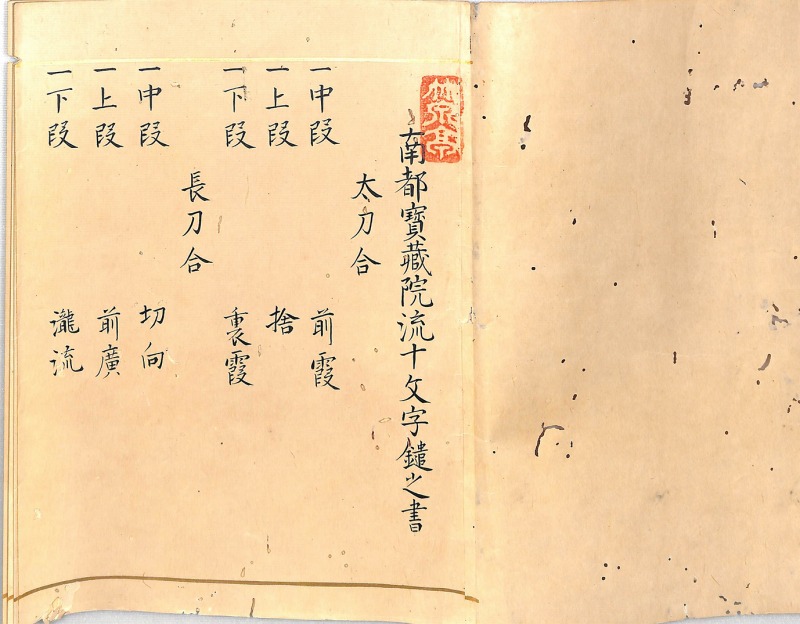 南都寶藏院流十文字鑓之書
太刀合
一中段 前霞
一上段 捨
一下段 裏霞
長刀合
一中段 切向
一上段 前廣
一下段 瀧流